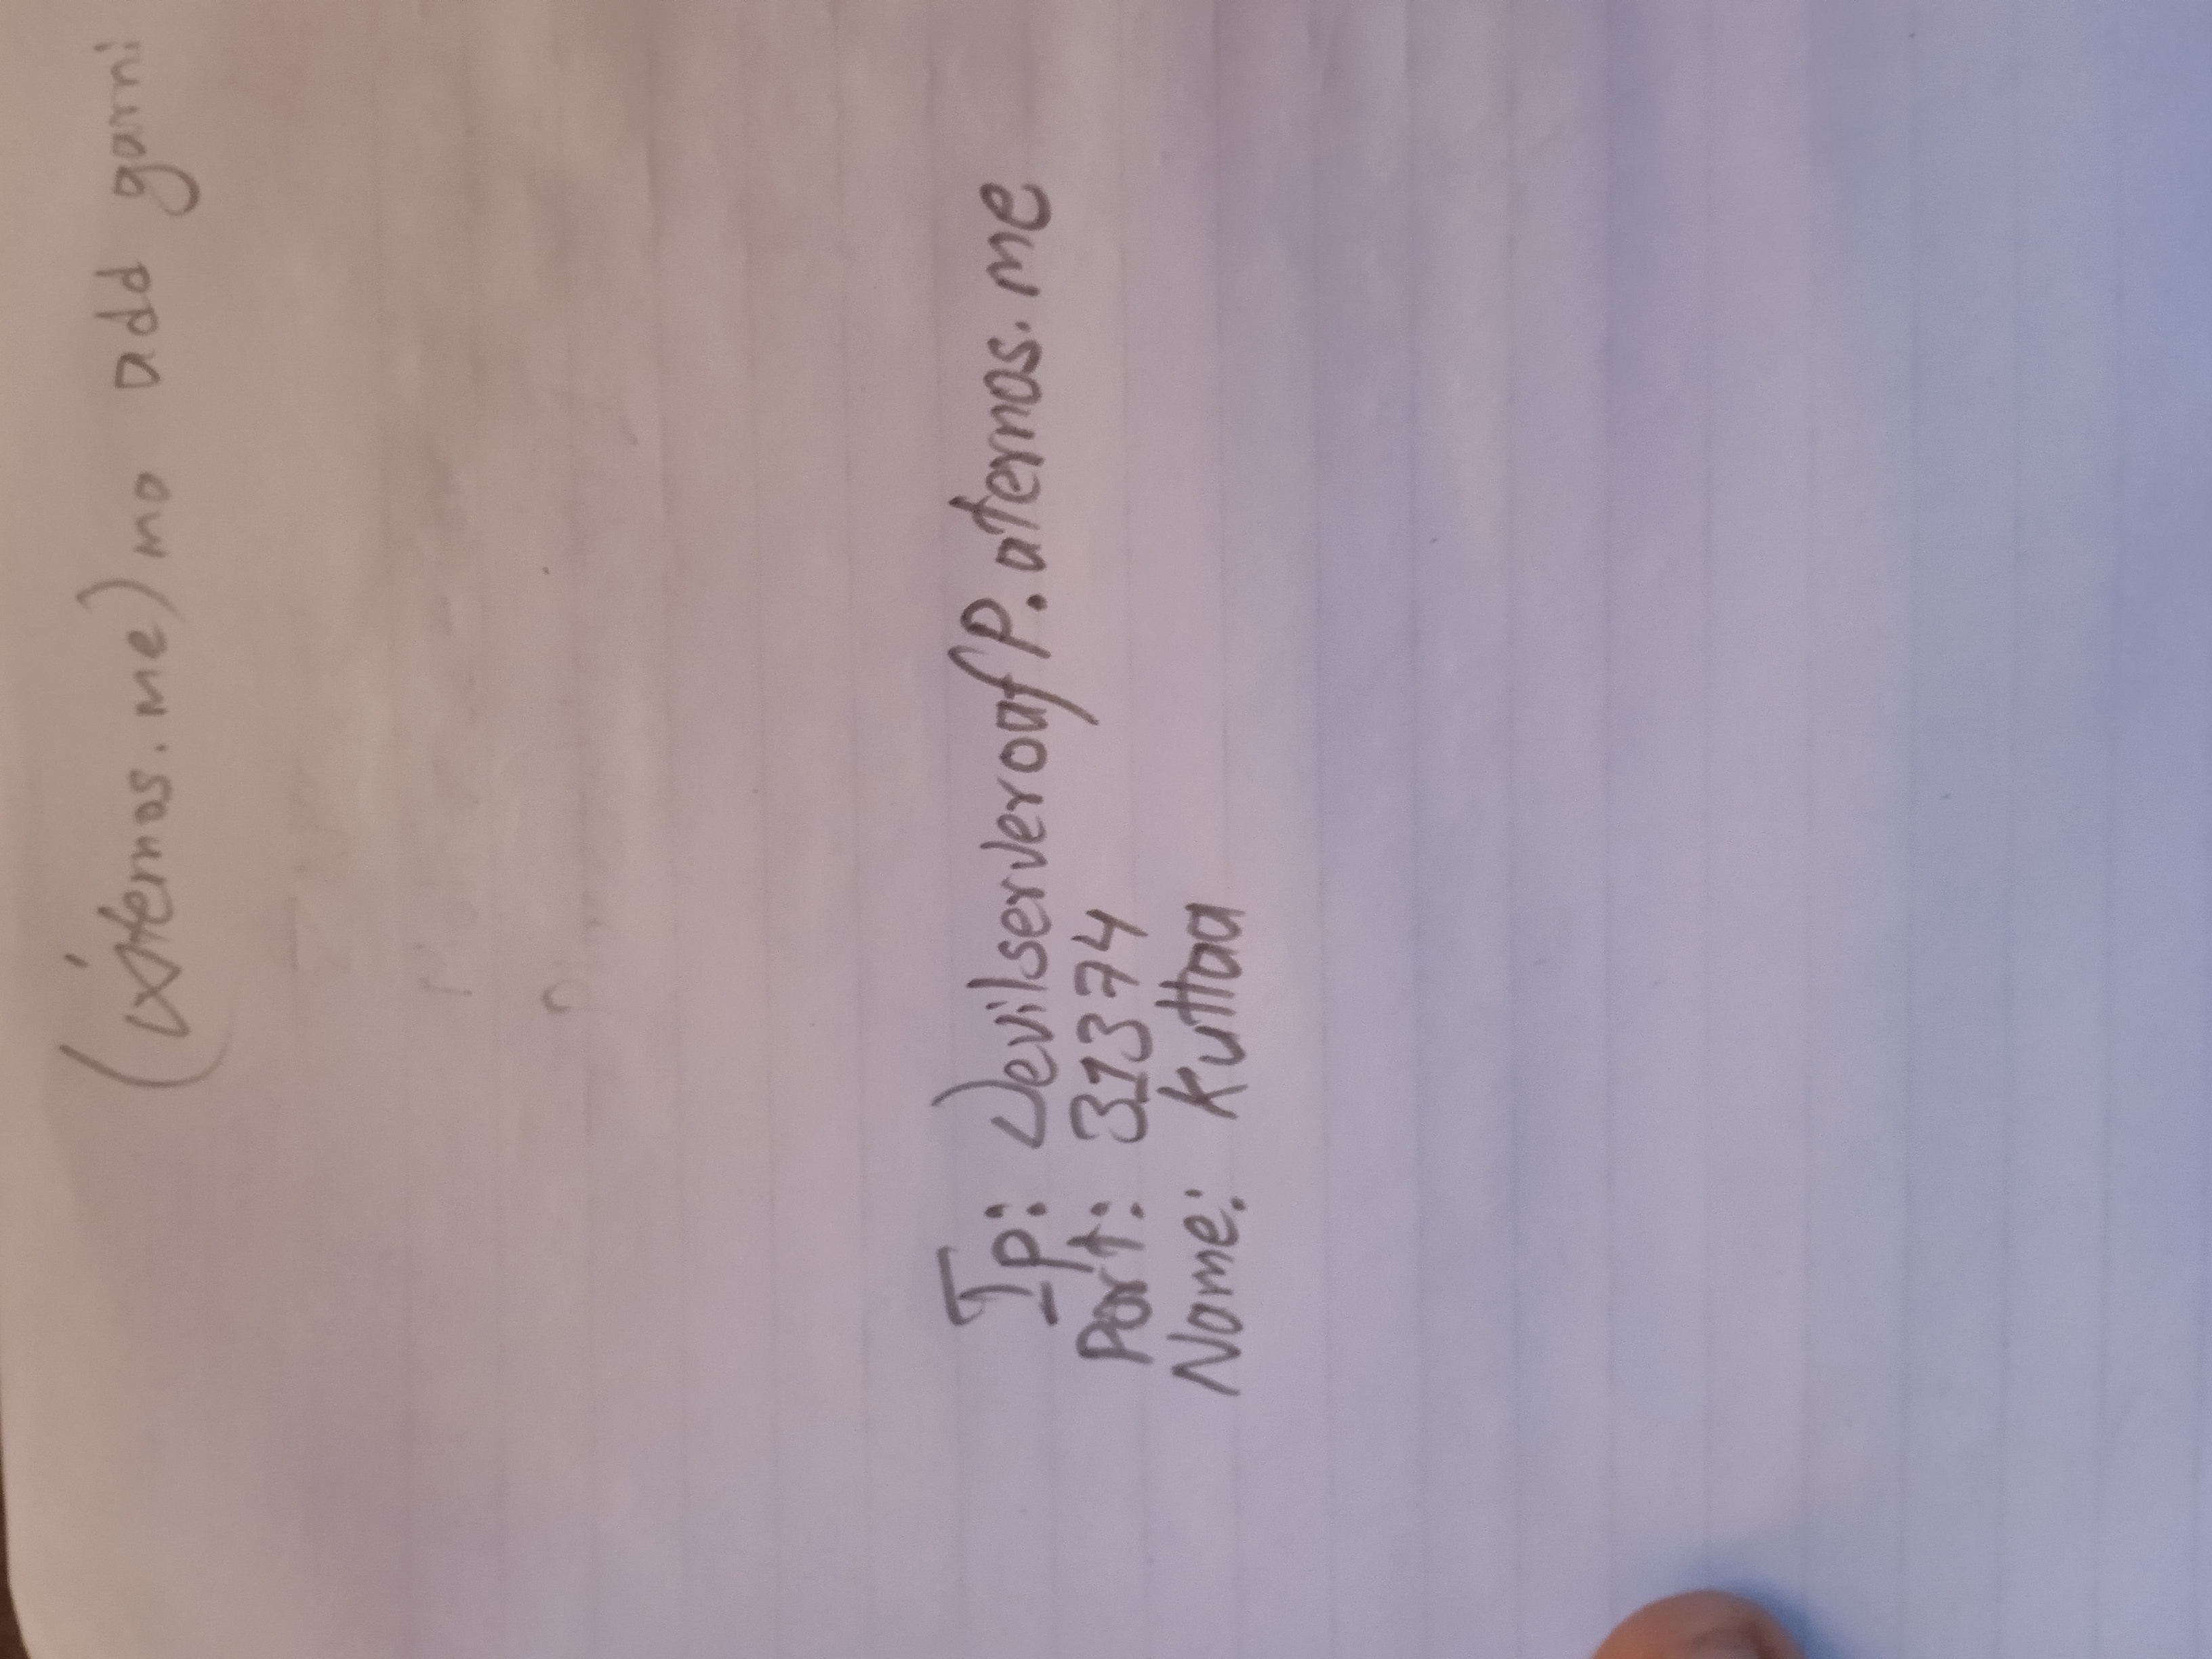 (aternos.me) mo add garni
Ip: DevilserveroafP.aternos.me
Port: 31374
Name: Kuttaa